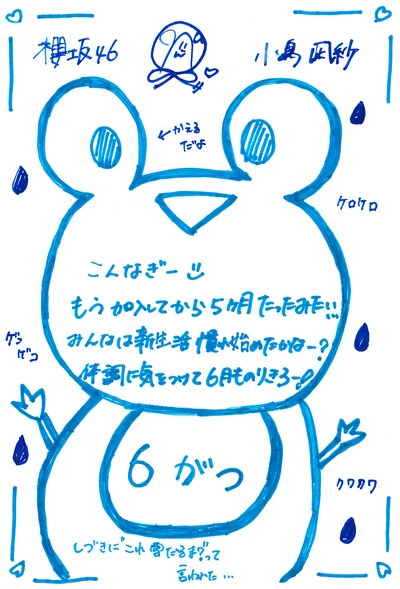 櫻坂46
小島凪紗
←かえる
だよ
ケロケロ
こんなぎー
もう加入してから5ヶ月たったみたい!!
みんなは新生活慣れ始めたかなー?
体調に気をつけて6月ものりきろー!
ゲコ
ゲコ
6がつ
クワクワ
しづきに"これ雪だるま?"って
言われた…